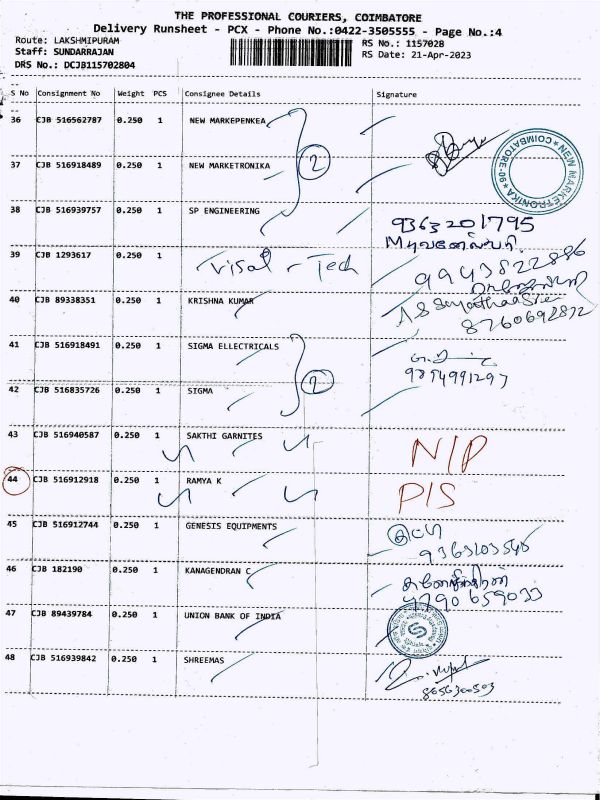 THE PROFESSIONAL COURIERS, COIMBATORE
Delivery Runsheet - PCX - Phone No.:0422-3505555 - Page No.:4
Route: LAKSHMIPURAM
Staff: SUNDARRAJAN
DRS No.: DCJB115702804
RS No.: 1157028
RS Date: 21-Apr-2023
S No Consignment No Weight PCS Consignee Details Signature
36 CJB 516562787 0.250 1 NEW MARKEPENKEA
2
NEW MARKETRONIKA
COIMBATORE-06
37 CJB 516918489 0.250 1 NEW MARKETRONIKA
38 CJB 516939757 0.250 1 SP ENGINEERING
9363201795
39 CJB 1293617 0.250 1 Visal - Tech
9943822886
40 CJB 89338351 0.250 1 KRISHNA KUMAR
8760692872
41 CJB 516918491 0.250 1 SIGMA ELLECTRICALS
9894991297
2
42 CJB 516835726 0.250 1 SIGMA
43 CJB 516940587 0.250 1 SAKTHI GARNITES N/P
44 CJB 516912918 0.250 1 RAMYA K P/S
45 CJB 516912744 0.250 1 GENESIS EQUIPMENTS
9363103540
46 CJB 182190 0.250 1 KANAGENDRAN C
9790659033
47 CJB 89439784 0.250 1 UNION BANK OF INDIA
48 CJB 516939842 0.250 1 SHREEMAS
8656300503